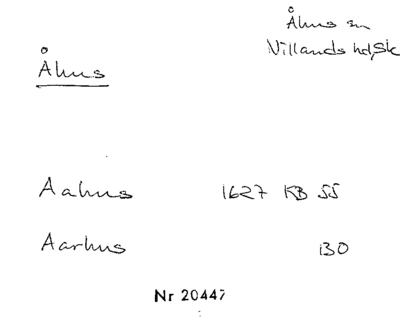 Åhus sn
Villands hd, Sk
Åhus
Aahus 1627 KB 55
Aarhus 130
Nr 20447